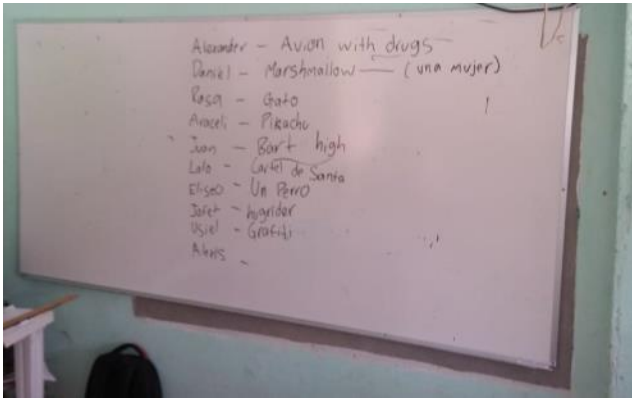 Alexander - Avion with drugs
Daniel - Marshmallow — (una mujer)
Rosa - Gato
Araceli - Pikachu
Juan - Bart high
Lalo - Cartel de Santa
Eliseo - Un Perro
Jafet -
Usiel - Grafiti
Alexis -